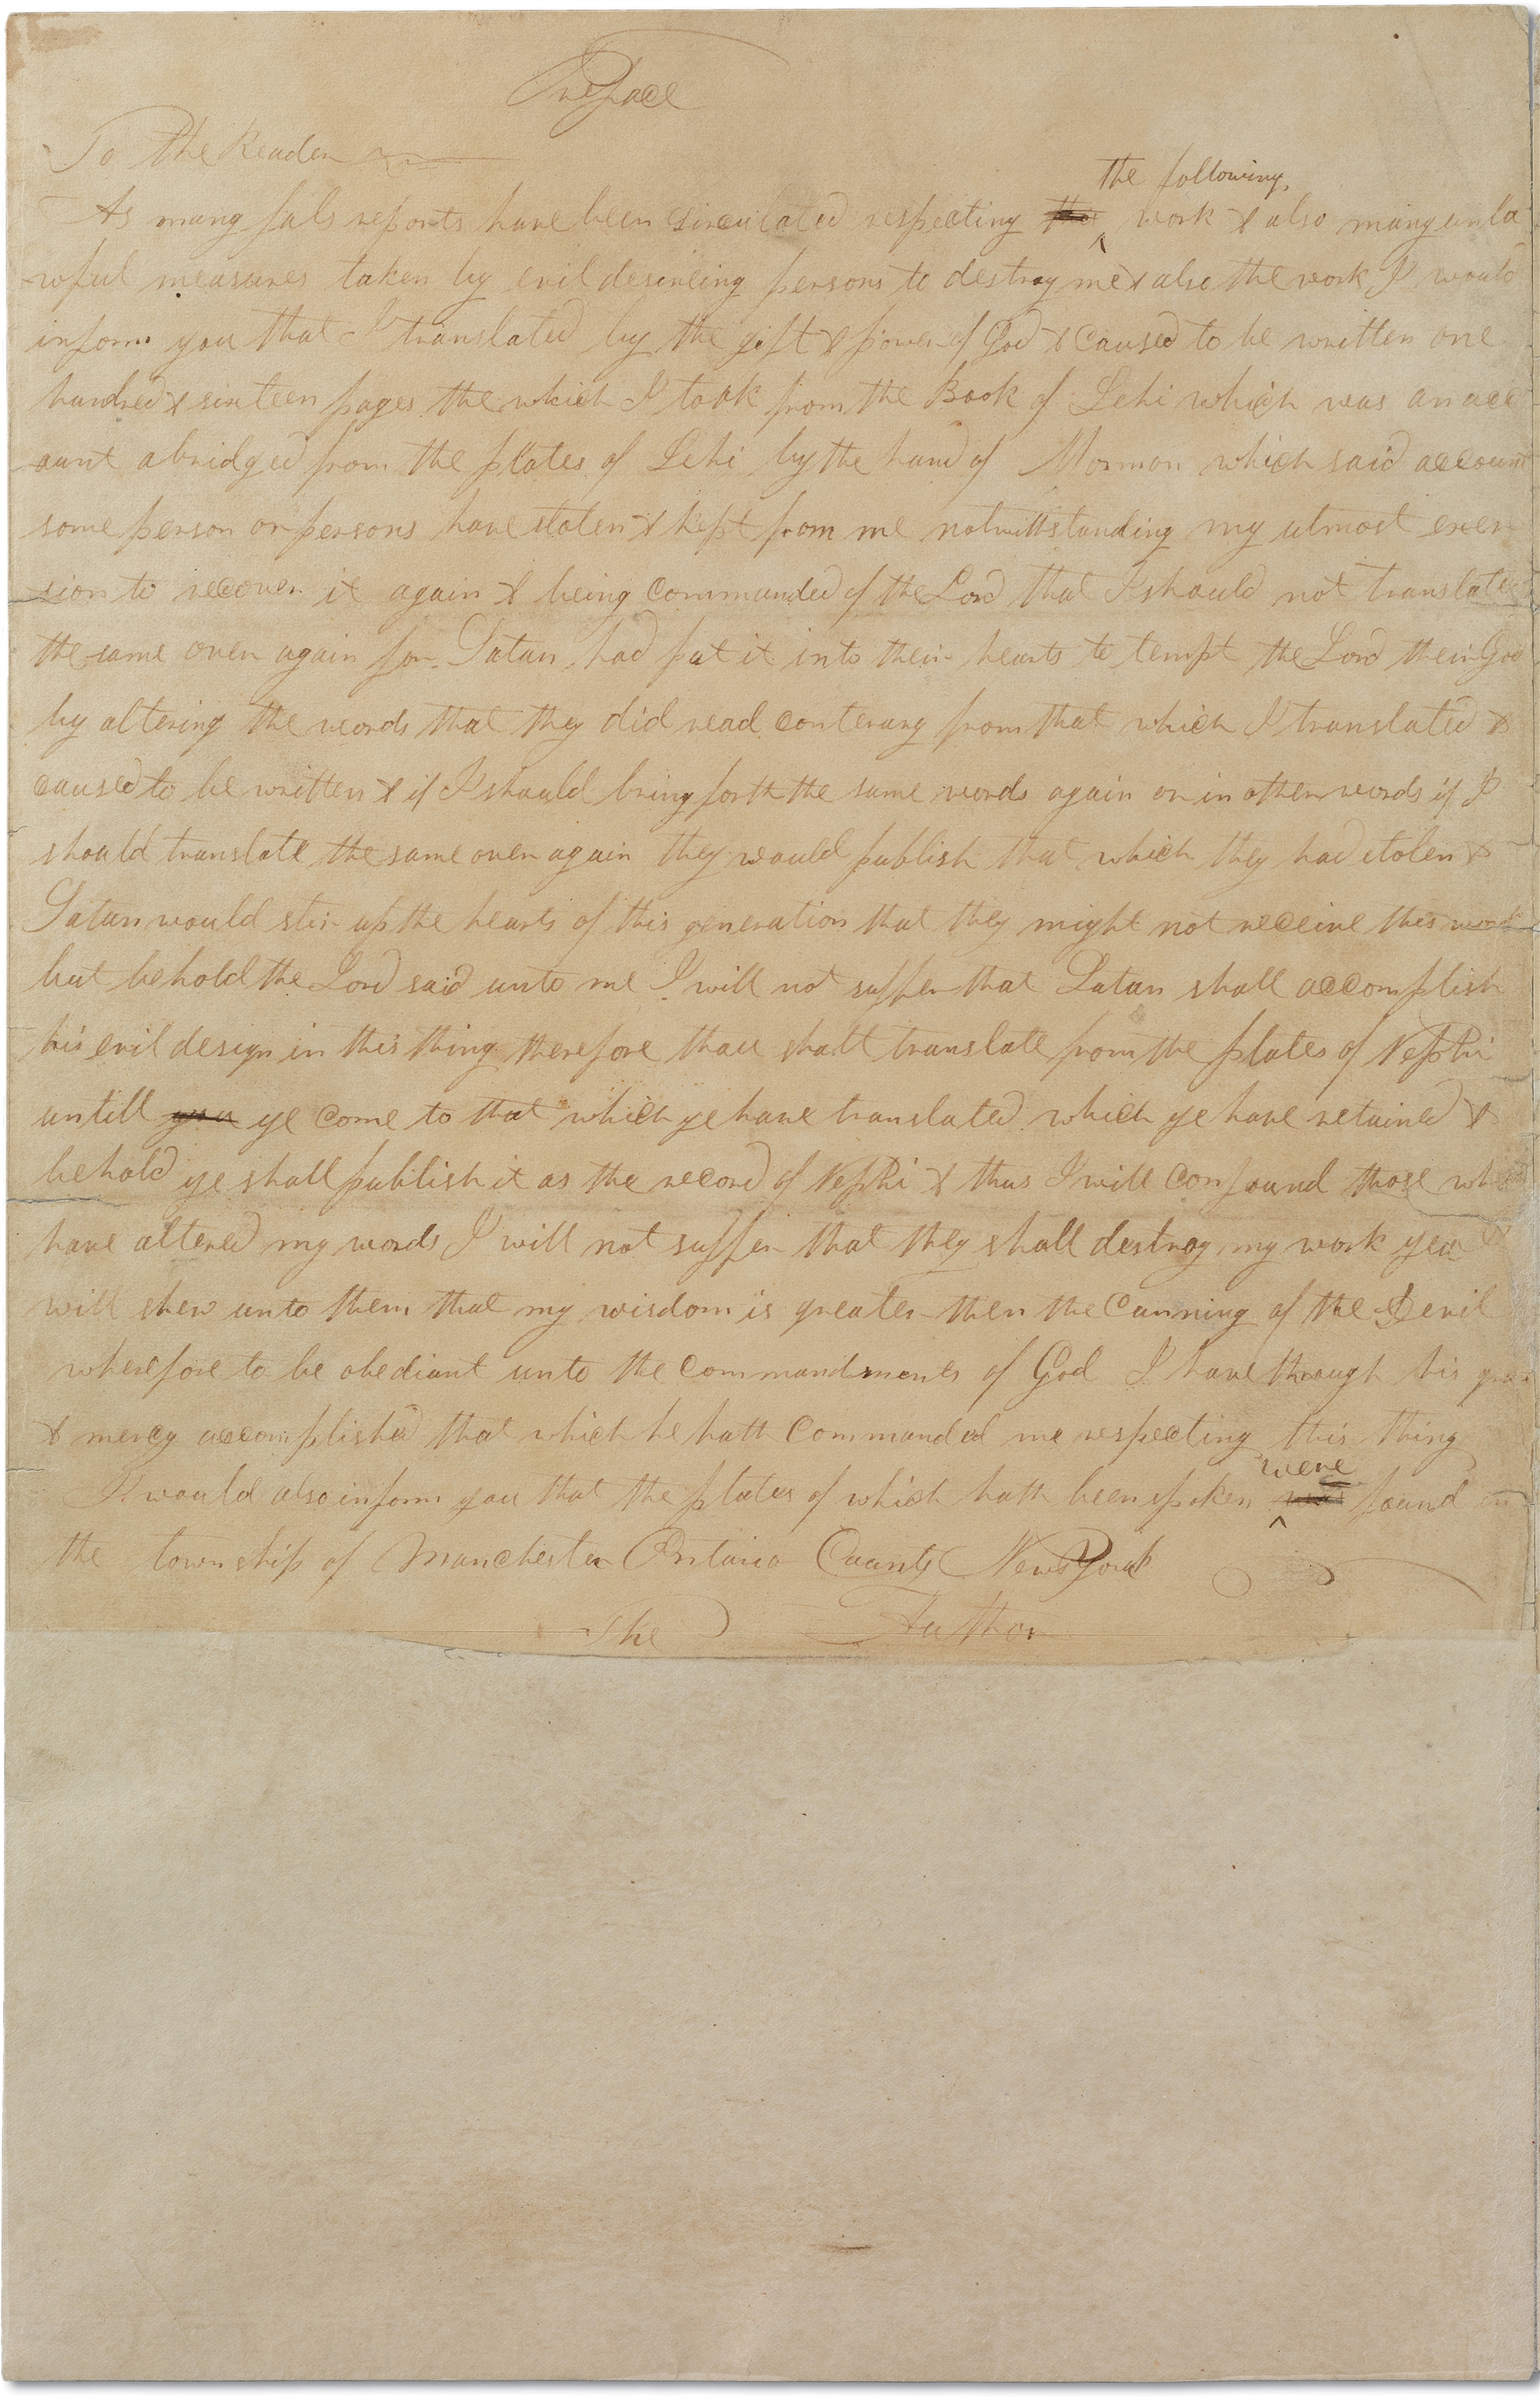 Preface
To the Reader
the following,
As many fals reports have been circulated respecting work & also many unla
wful measures taken by evil desineing persons to destroy me & also the work I would
inform you that I translated by the gift & power of God & caused to be written one
hundred & sixteen pages the which I took from the Book of Lehi which was an acc
ount abridged from the plates of Lehi by the hand of Mormon which said account
some person or persons have stolen & kept from me notwithstanding my utmost exer
sion to recover it again & being commanded of the Lord that I should not translate
the same over again for Satan had put it into their hearts to tempt the Lord their God
by altering the words that they did read conterary from that which I translated &
caused to be written & if I should bring forth the same words again or in other words if I
should translate the same over again they would publish that which they had stolen &
Satan would stir up the hearts of this generation that they might not receive this work
but behold the Lord said unto me I will not suffer that Satan shall accomplish
his evil design in this thing therefore thou shalt translate from the plates of Nephi
untill ye come to that which ye have translated which ye have retained &
behold ye shall publish it as the record of Nephi & thus I will confound those who
have altered my words I will not suffer that they shall destroy my work yea
will shew unto them that my wisdom is greater then the cunning of the Devil
wherefore to be obediant unto the commandments of God I have through his
& mercy accomplished that which he hath commanded me respecting this thing
were
I would also inform you that the plates of which hath been spoken was found in
the township of Manchester Ontario County New York
The Author